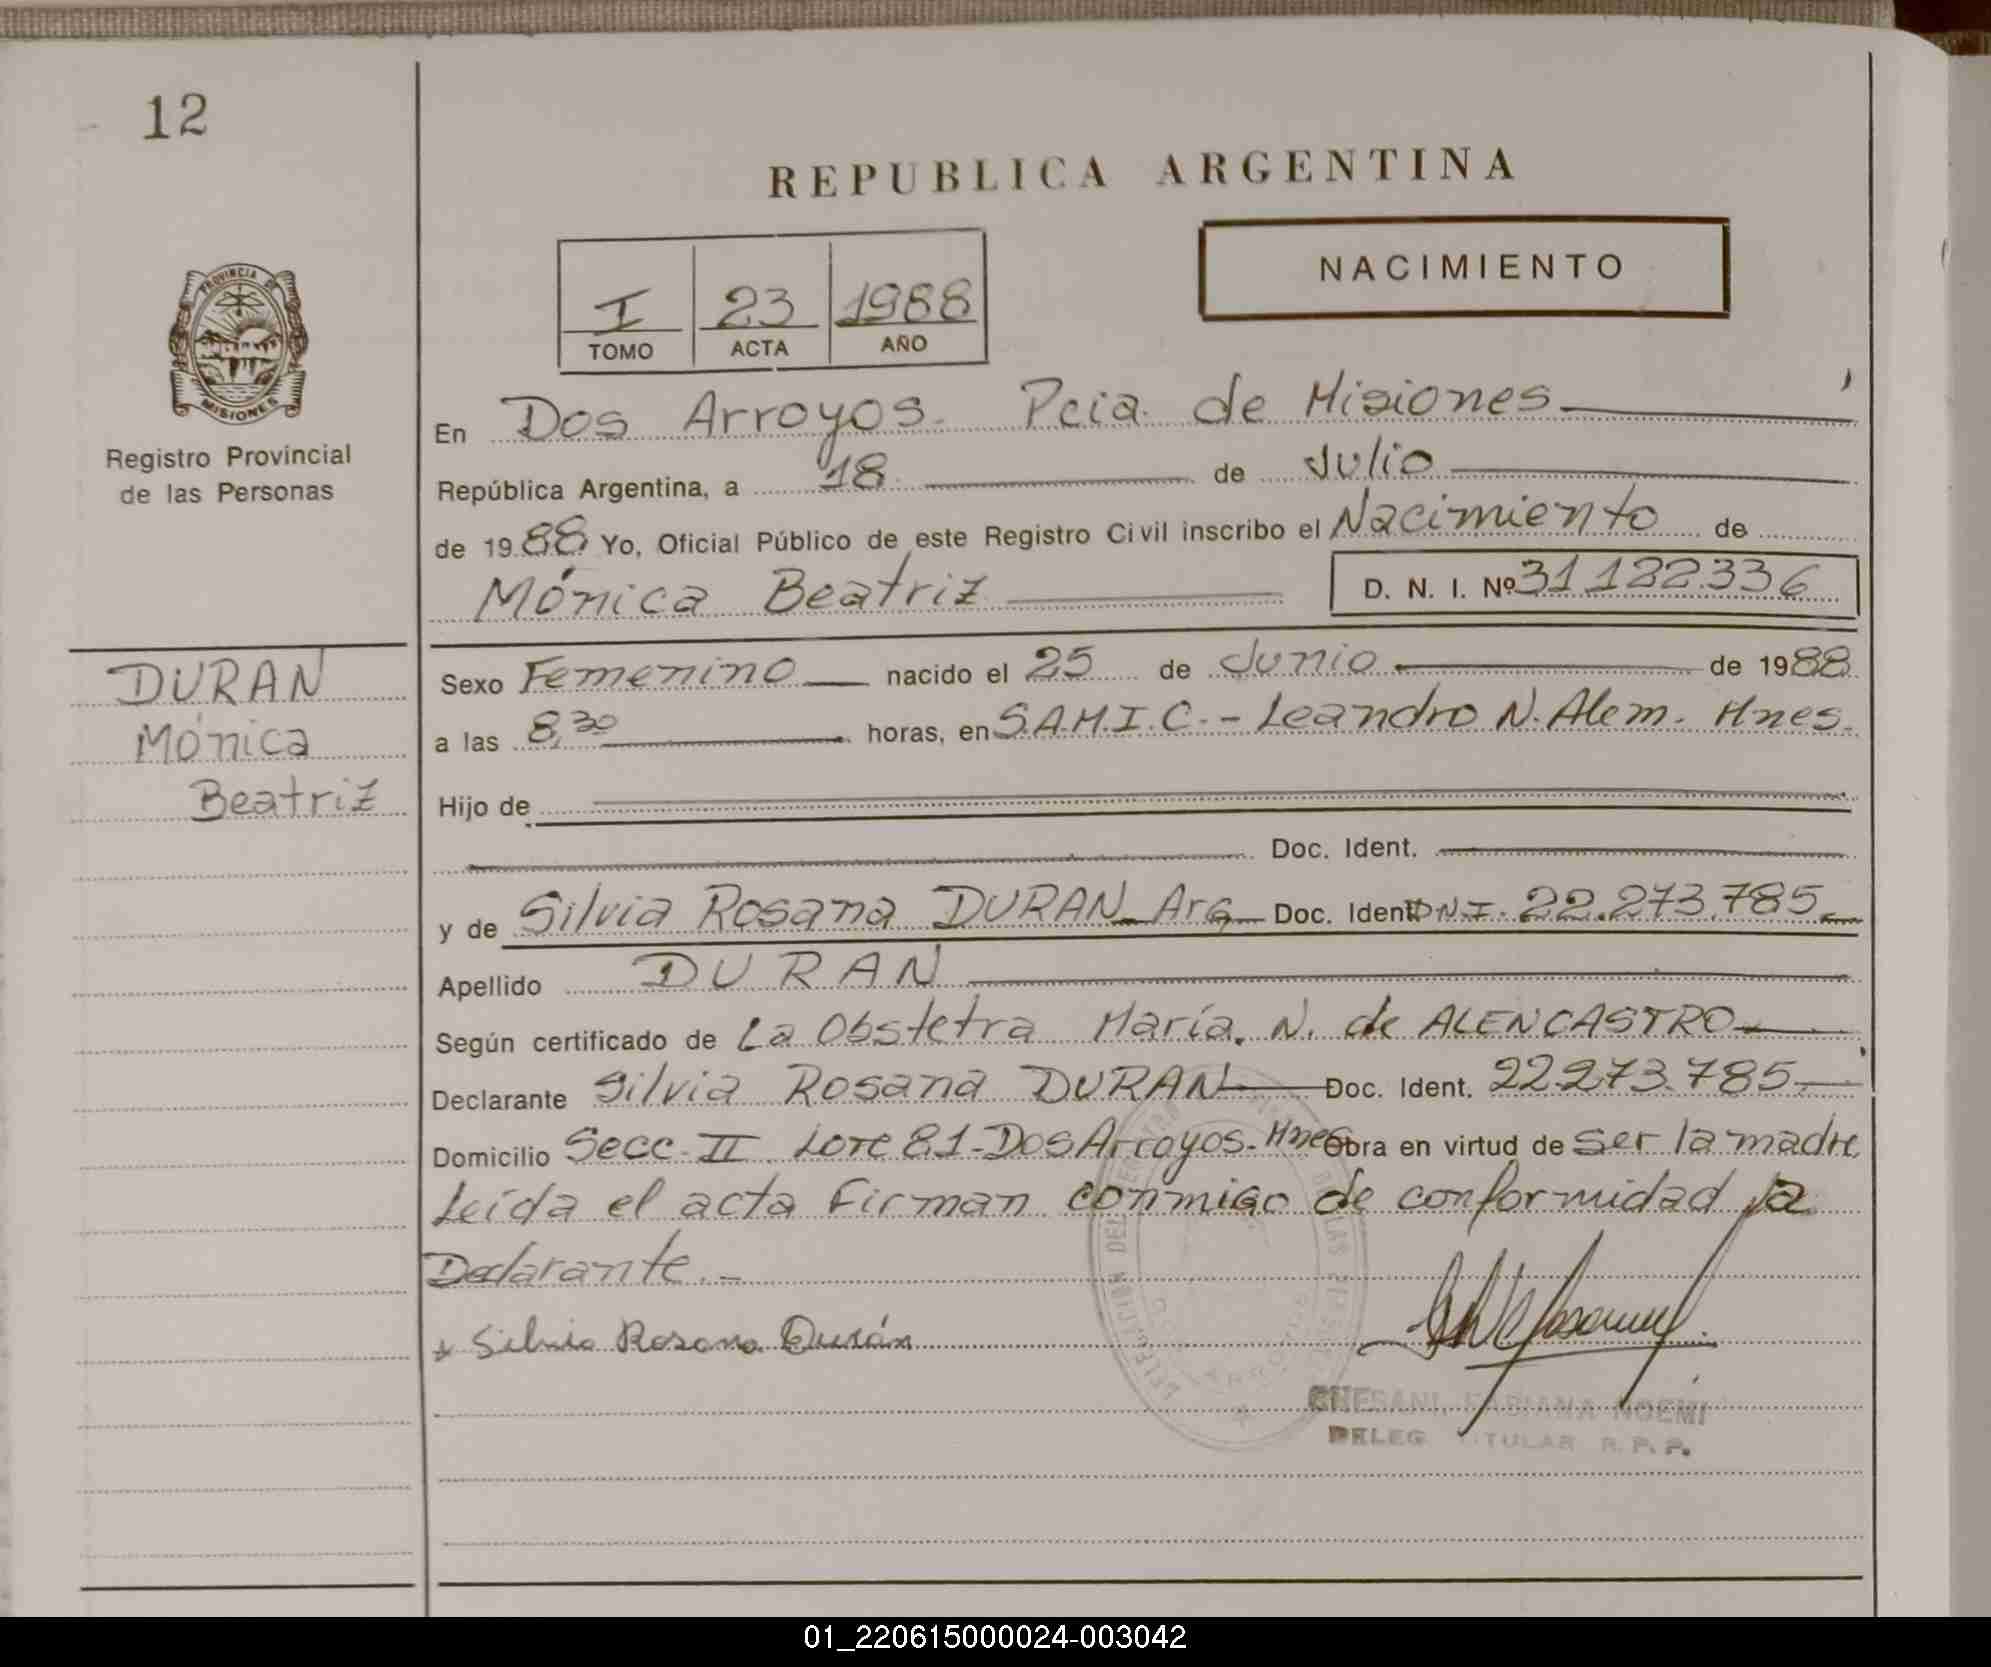 12
REPUBLICA ARGENTINA
NACIMIENTO
I 23 1988
TOMO ACTA AÑO
PROVINCIA DE
MISIONES
Registro Provincial
de las Personas
En Dos Arroyos. Pcia. de Misiones
República Argentina, a 18 de Julio
de 1988 Yo, Oficial Público de este Registro Civil inscribo el Nacimiento de
Mónica Beatriz D. N. I. Nº 31.122.336
DURAN
Mónica
Beatriz
Sexo Femenino nacido el 25 de Junio de 1988
a las 8,30 horas, en S.A.M.I.C.- Leandro N. Alem. Mnes.
Hijo de
Doc. Ident.
y de Silvia Rosana DURAN Arg Doc. Ident. D.N.I. 22.273.785
Apellido DURAN
Según certificado de La Obstetra María N. de ALENCASTRO
Declarante Silvia Rosana DURAN Doc. Ident. 22.273.785
Domicilio Secc. II Lote 81-Dos Arroyos-Mnes Obra en virtud de ser la madre
Leída el acta Firman conmigo de conformidad la
Declarante.-
Silvia Rosana Durán
GHESANI, FABIANA NOEMI
DELEG. TITULAR R. P. P.
01_220615000024-003042